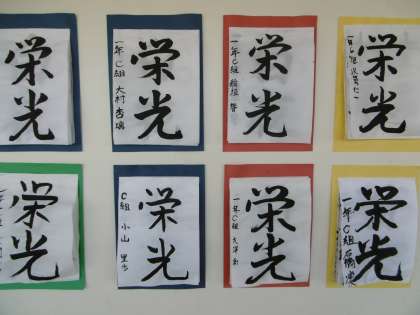 栄光
栄光
一年C組 大村 杏璃
栄光
一年C組 稲垣 響
栄光
栄光
栄光
C組 小山 里歩
栄光
一年C組 大澤
栄光
一年C組